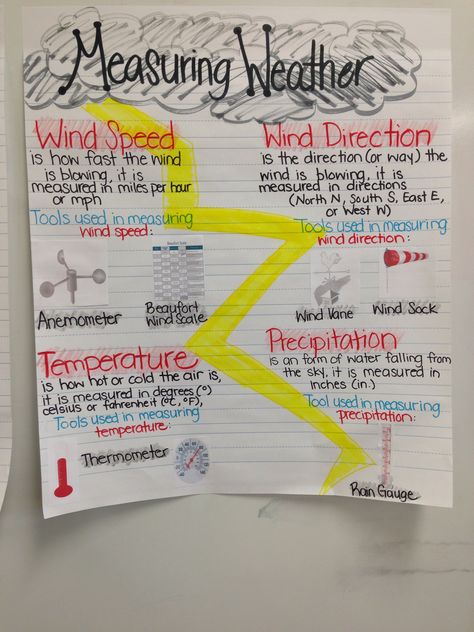 Measuring Weather
Wind Speed
is how fast the wind
is blowing, it is
measured in miles per hour
or mph
Tools used in measuring
wind speed:
Anemometer
Beaufort
Wind Scale
Wind Direction
is the direction (or way) the
wind is blowing, it is
measured in directions
(North N, South S, East E,
or West W)
Tools used in measuring
wind direction:
Wind Vane
Wind Sock
Temperature
is how hot or cold the air is,
it is measured in degrees (°)
celsius or fahrenheit (°C, °F),
Tools used in measuring
temperature:
Thermometer
Precipitation
is an form of water falling from
the sky, it is measured in
inches (in.)
Tool used in measuring
precipitation:
Rain Gauge